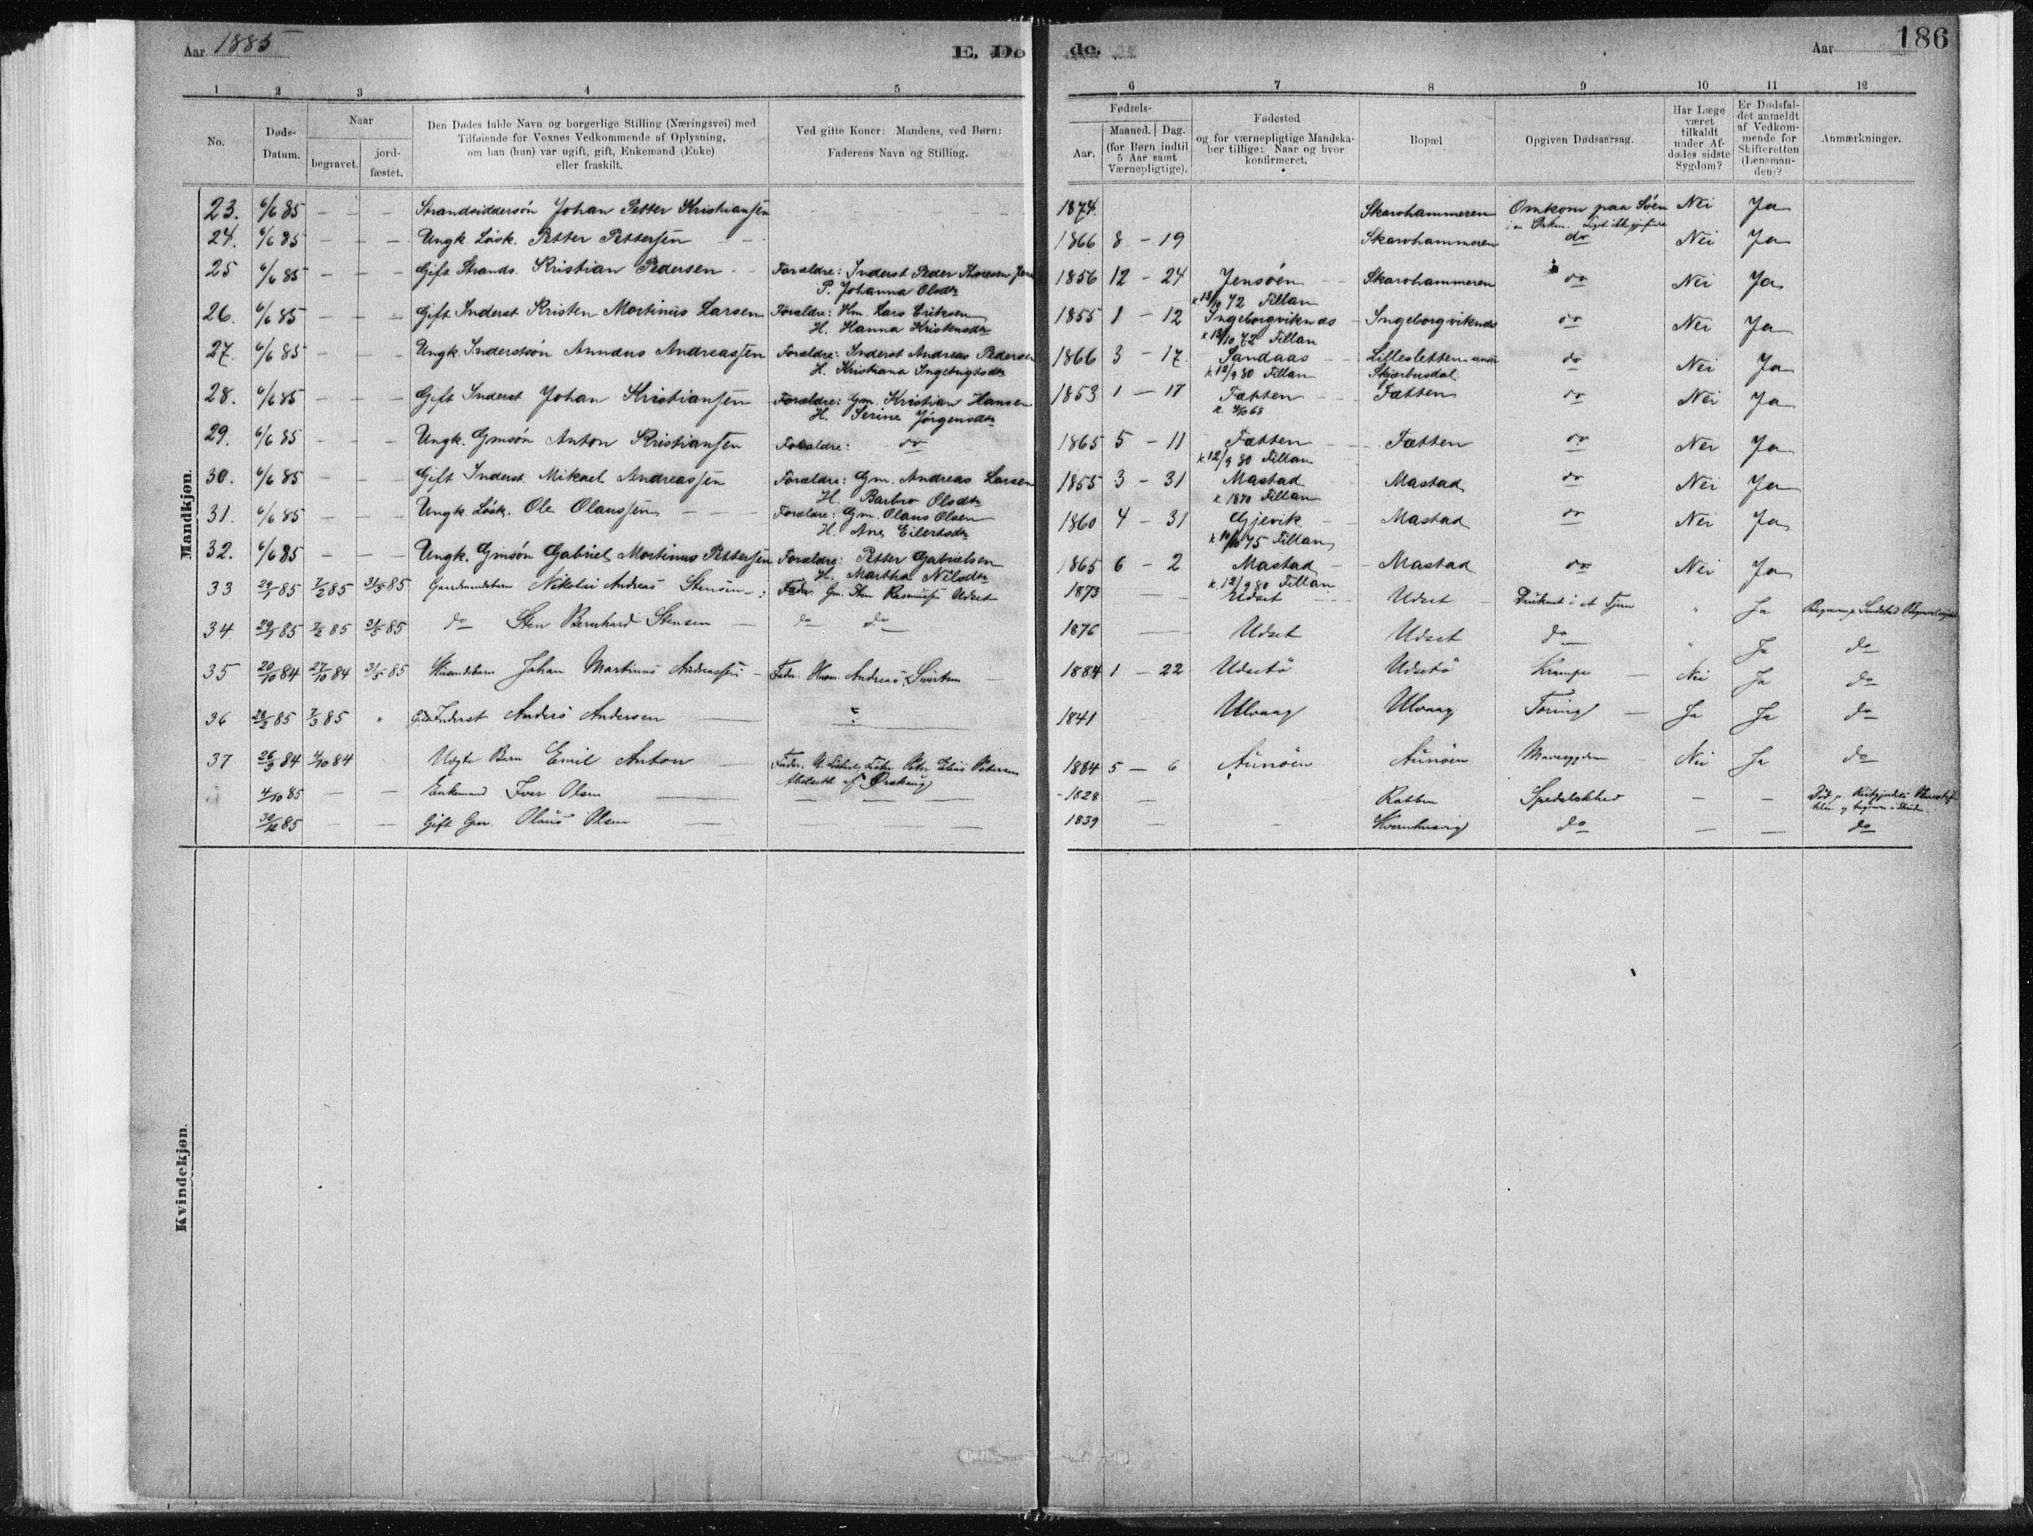 Aar 1885 E. Døde. Aar 186
1 2 3 4 5 6 7 8 9 10 11 12
No. Døds-Datum. Naar begravet. jord-fæstet. Den Dødes fulde Navn og borgerlige Stilling (Næringsvei) med Tilføiende for Voxnes Vedkommende af Oplysning, om han (hun) var ugift, gift, Enkemand (Enke) eller fraskilt. Ved gifte Koner: Mandens, ved Børn: Faderens Navn og Stilling. Fødsels- Aar. Maaned. Dag. (for Børn indtil 5 Aar samt Værnepligtige). Fødested og for værnepligtige Mandskaber tillige: Naar og hvor konfirmeret. Bopæl Opgiven Dødsaarsag. Har Læge været tilkaldt under Afdødes sidste Sygdom? Er Dødsfaldet anmeldt af Vedkommende for Skifteretten (Lensmanden)? Anmærkninger.
Mandkjøn.
23. 6/6 85 — — Strandsiddersøn Johan Petter Kristiansen 1874 Skarvhammeren Omkom paa Søen Nei Ja
24. 6/6 85 — — Ungk. Løsk. Petter Pettersen — 1866 8 — 19 Skarvhammeren do Nei Ja
25 6/6 85 — — Gift Strands. Kristian Pedersen — Forældre: Inderst Peder Thoresen 1856 12 — 24 Jensøen Skarvhammeren do Nei Ja
P. Johanna Olsdtr k. 13/10 72 Fillan
26. 6/6 85 — — Gift Inderst Kristen Martinus Larsen Forældre: Hm. Lars Eriksen 1855 1 — 12 Ingeborgviknæs Ingeborgviknæs do Nei Ja
H. Hanna Kristensdtr k. 13/10 72 Fillan
27. 6/6 85 — — Ungk. Inderstsøn Annæus Andreassen Forældre: Inderst Andreas Pedersen 1866 3 — 17 Sandaas Lillesletten do Nei Ja
H. Kristiana Ingebrigtsdtr k. 12/9 80 Fillan Skjærbusdal
28. 6/6 85 — — Gift Inderst Johan Kristiansen Forældre: Gm. Kristian Hansen 1853 1 — 17 Fætten Fætten do Nei Ja
H. Serine Jørgensdtr
29. 6/6 85 — — Ungk. Gmsøn Anton Kristiansen Forældre: do 1865 5 — 11 Fætten Fætten do Nei Ja
k. 12/9 80 Fillan
30. 6/6 85 — — Gift Inderst Mikael Andreassen Forældre: Gm. Andreas Larsen 1855 3 — 31 Mastad Mastad do Nei Ja
H. Barbro Olsdtr k. 1870 Fillan
31. 6/6 85 — — Ungk. Løsk. Ole Olaussen — Forældre: Gm. Olaus Olsen 1860 4 — 31 Gjevik Mastad do Nei Ja
H. Ane Eilertsdtr k. 10/10 75 Fillan
32. 6/6 85 — — Ungk. Gmsøn Gabriel Martinus Pettersen Forældre: Petter Gabrielsen 1865 6 — 2 Mastad — Mastad do Nei Ja
H. Martha Nilsdtr k. 12/9 80 Fillan
33 29/1 85 7/2 85 31/5 85 Gaardmandsbarn Nikolai Andreas Stensen Fader Gm. Sten Rasmussen Udset 1873 — Udset Udset Druknet i et Tjern " Ja
34 29/1 85 7/2 85 31/5 85 do Sten Bernhard Stensen — do do 1876 — Udset Udset do " Ja do
35 20/10 84 27/10 84 31/5 85 Husmandsbarn Johan Martinus Andreassen — Fader Husm. Andreas Sivertsen 1884 1 — 22 Udsetø Udsetø Krampe — Nei Ja do
36 28/2 85 7/3 85 " Gift Inderst Anders Andersen 1841 Ulvaag Ulvaag Tæring — Ja Ja do
37 26/9 84 4/10 84 Uægte Barn Emil Anton — 1884 5 — 6 Aunøen Aunøen Mavesygdom Nei Ja do
4/10 85 — — Enkemand Iver Olsen — — — 1828 — Ratten Spedalskhed — —
30/12 85 — — Gift Gm. Olaus Olsen — — — 1839 — — Kvernhusvig do — — do
Kvindekjøn.